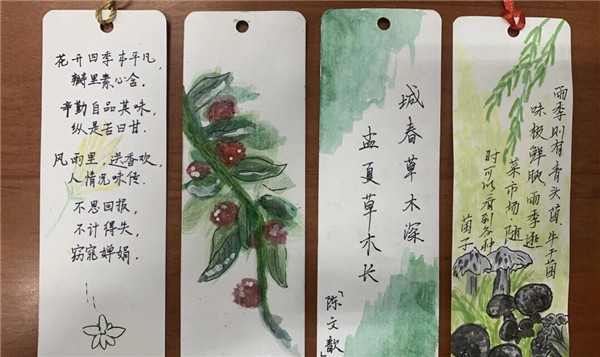 花开四季本平凡,
瓣里素心含.
辛勤自品其味,
纵是苦日甘.
风雨里,送香欢,
人情况味传.
不思回报,
不计得失,
窈窕婵娟.
城春草木深
孟夏草木长
「陈文歆」
雨季则有青头菌.牛干菌
味极鲜腴.雨季逛
菜市场.随
时可以看到各种
菌子